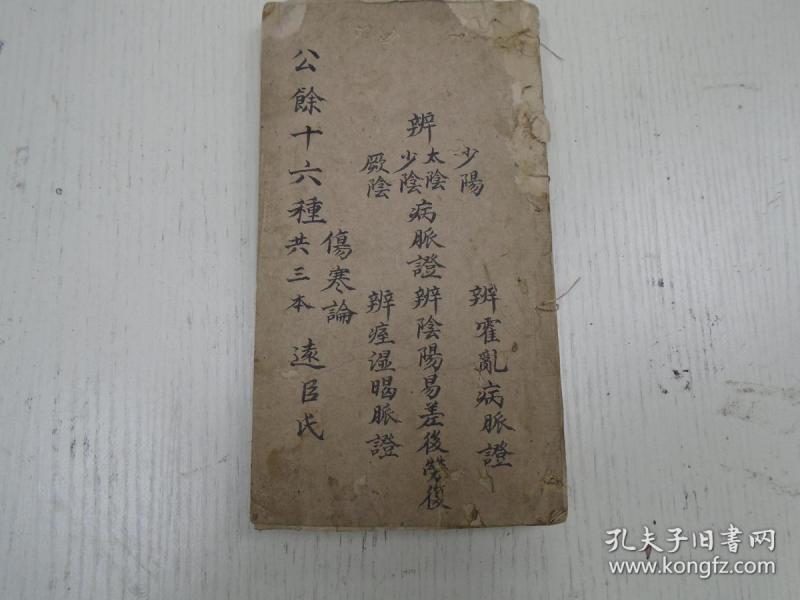 少陽
辨太陰少陰厥陰病脈證
辨霍亂病脈證
辨陰陽易差後勞復
辨痙濕暍脈證
傷寒論
公餘十六種共三本
遠臣氏
孔夫子旧书网
www.kongfz.com